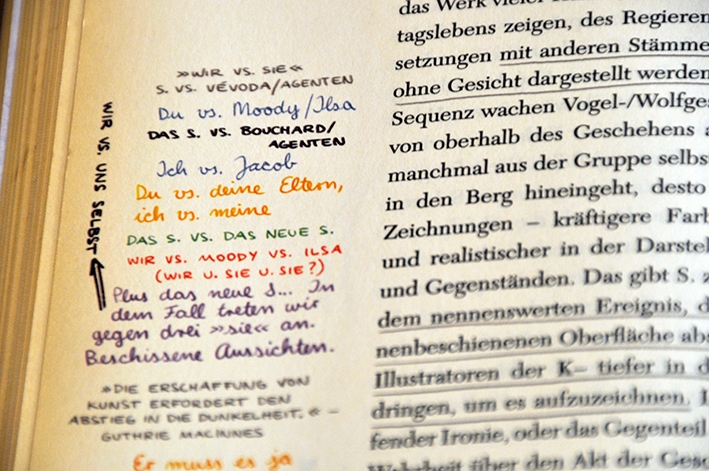 »WIR VS. SIE«
S. VS. VÉVODA/AGENTEN
Du vs. Moody/Ilsa
DAS S. VS. BOUCHARD/
AGENTEN
Ich vs. Jacob
Du vs. deine Eltern,
ich vs. meine
DAS S. VS. DAS NEUE S.
WIR VS. MOODY VS. ILSA
(WIR U. SIE U. SIE?)
Plus das neue S... In
dem Fall treten wir
gegen drei »sie« an.
Beschissene Aussichten.
WIR VS. UNS SELBST
»DIE ERSCHAFFUNG VON
KUNST ERFORDERT DEN
ABSTIEG IN DIE DUNKELHEIT.« –
GUTHRIE MACINNES
Er muss es ja
das Werk vieler
tagslebens zeigen, des Regieren
setzungen mit anderen Stämme
ohne Gesicht dargestellt werden
Sequenz wachen Vogel-/Wolfge
von oberhalb des Geschehens
manchmal aus der Gruppe selbs
in den Berg hineingeht, desto
Zeichnungen – kräftigere Farb
und realistischer in der Darstel
und Gegenständen. Das gibt S. z
dem nennenswerten Ereignis, d
nenbeschienenen Oberfläche abs
Illustratoren der K– tiefer in d
dringen, um es aufzuzeichnen.
fender Ironie, oder das Gegenteil
Wahrheit über den Akt der Gesc